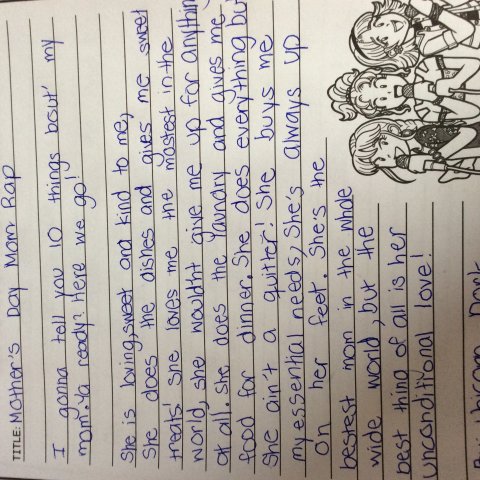 TITLE: Mother's Day Mom Rap
I gonna tell you 10 things bout' my
mom. Ya ready? Here we go!
She is loving, sweet and kind to me,
She does the dishes and gives me sweet
treats! She loves me the mostest in the
world, she wouldn't give me up for anything
at all. She does the laundry and gives me
food for dinner. She does everything but
She ain't a quitter! She buys me
my essential needs, She's always up
on her feet. She's the
bestest mom in the whole
wide world, but the
best thing of all is her
unconditional love!